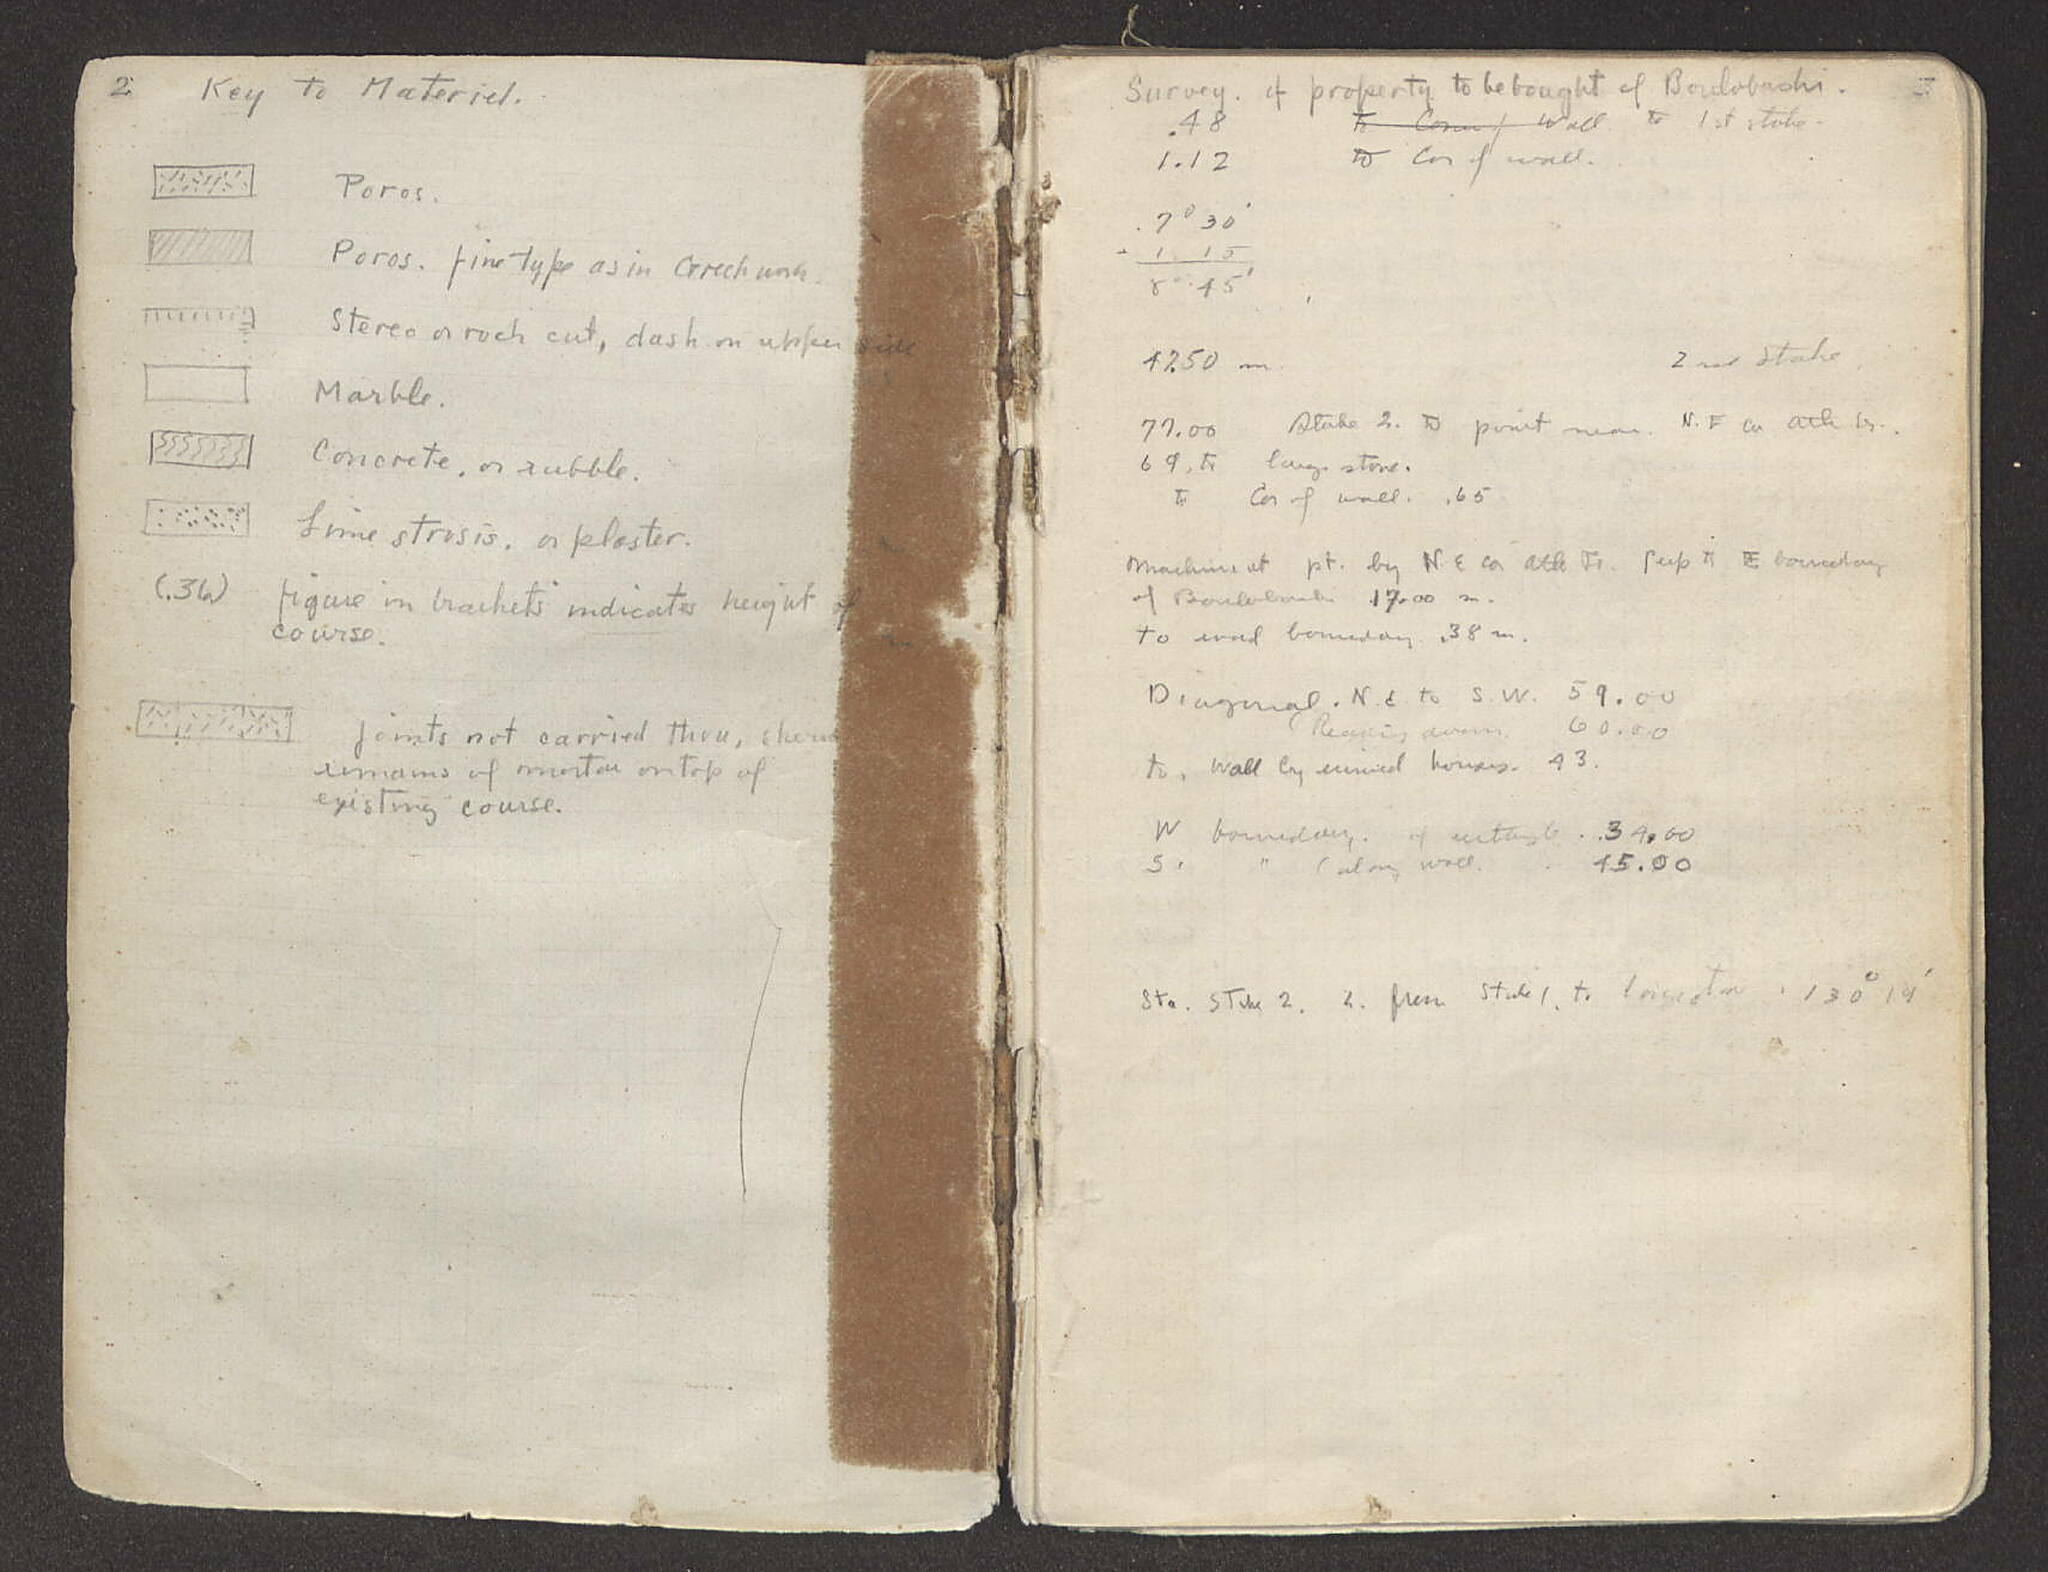 2 Key to Materiel.
Poros.
Poros. fine type as in Greek work.
Stereo or rock cut, dash on upper side
Marble.
Concrete, or rubble.
Lime strosis, or plaster.
(.36) figure in brackets indicates height of
course.
Joints not carried thru, show
remains of mortar on top of
existing course.
Survey. of property to be bought of Boulobashi. 3
.48 to Corner of Wall to 1st stake.
1.12 to Cor of wall.
7° 30'
1 15
8° 45'
47.50 m. 2nd Stake
77.00 Stake 2. to point near N.E co Ath Tr.
69. to large stone.
to Cor of wall. .65
Machine at pt. by N.E co Ath Tr. to E boundary
of Boulobashi 17.00 m.
to boundary .38 m.
Diagonal. N.E to S.W. 59.00
Reading down 60.00
to. Wall by ruined houses. 43.
W boundary. of rectangle. 34.00
S. " (along wall. 45.00
Sta. Stake 2. 2. from Stake 1. to large stone. 130° 19'